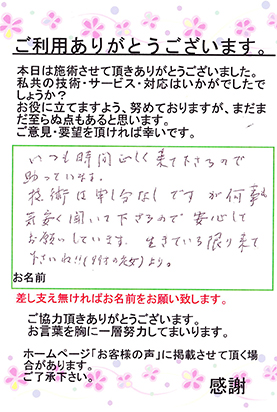 ご利用ありがとうございます。
本日は施術させて頂きありがとうございました。
私共の技術・サービス・対応はいかがでしたで
しょうか？
お役に立てますよう、努めておりますが、まだま
だ至らぬ点もあると思います。
ご意見・要望を頂ければ幸いです。
いつも時間正しく来て下さるので
助っています。
技術は申し分なしですが何事も
気安く聞いて下さるので安心して
お願いしています。生きている限り来て
下さいね!!より。
お名前
差し支え無ければお名前をお願い致します。
ご協力頂きありがとうございます。
お言葉を胸に一層努力してまいります。
ホームページ「お客様の声」に掲載させて頂く場
合があります。
ご了承下さい。
感謝